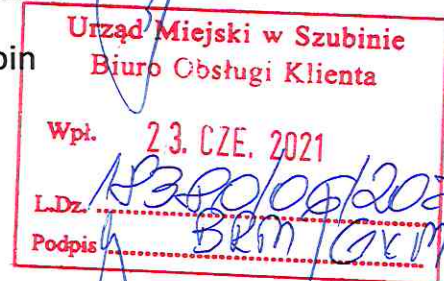 bin
Urząd Miejski w Szubinie
Biuro Obsługi Klienta
Wpł. 23. CZE. 2021
L.Dz.
Podpis BRM